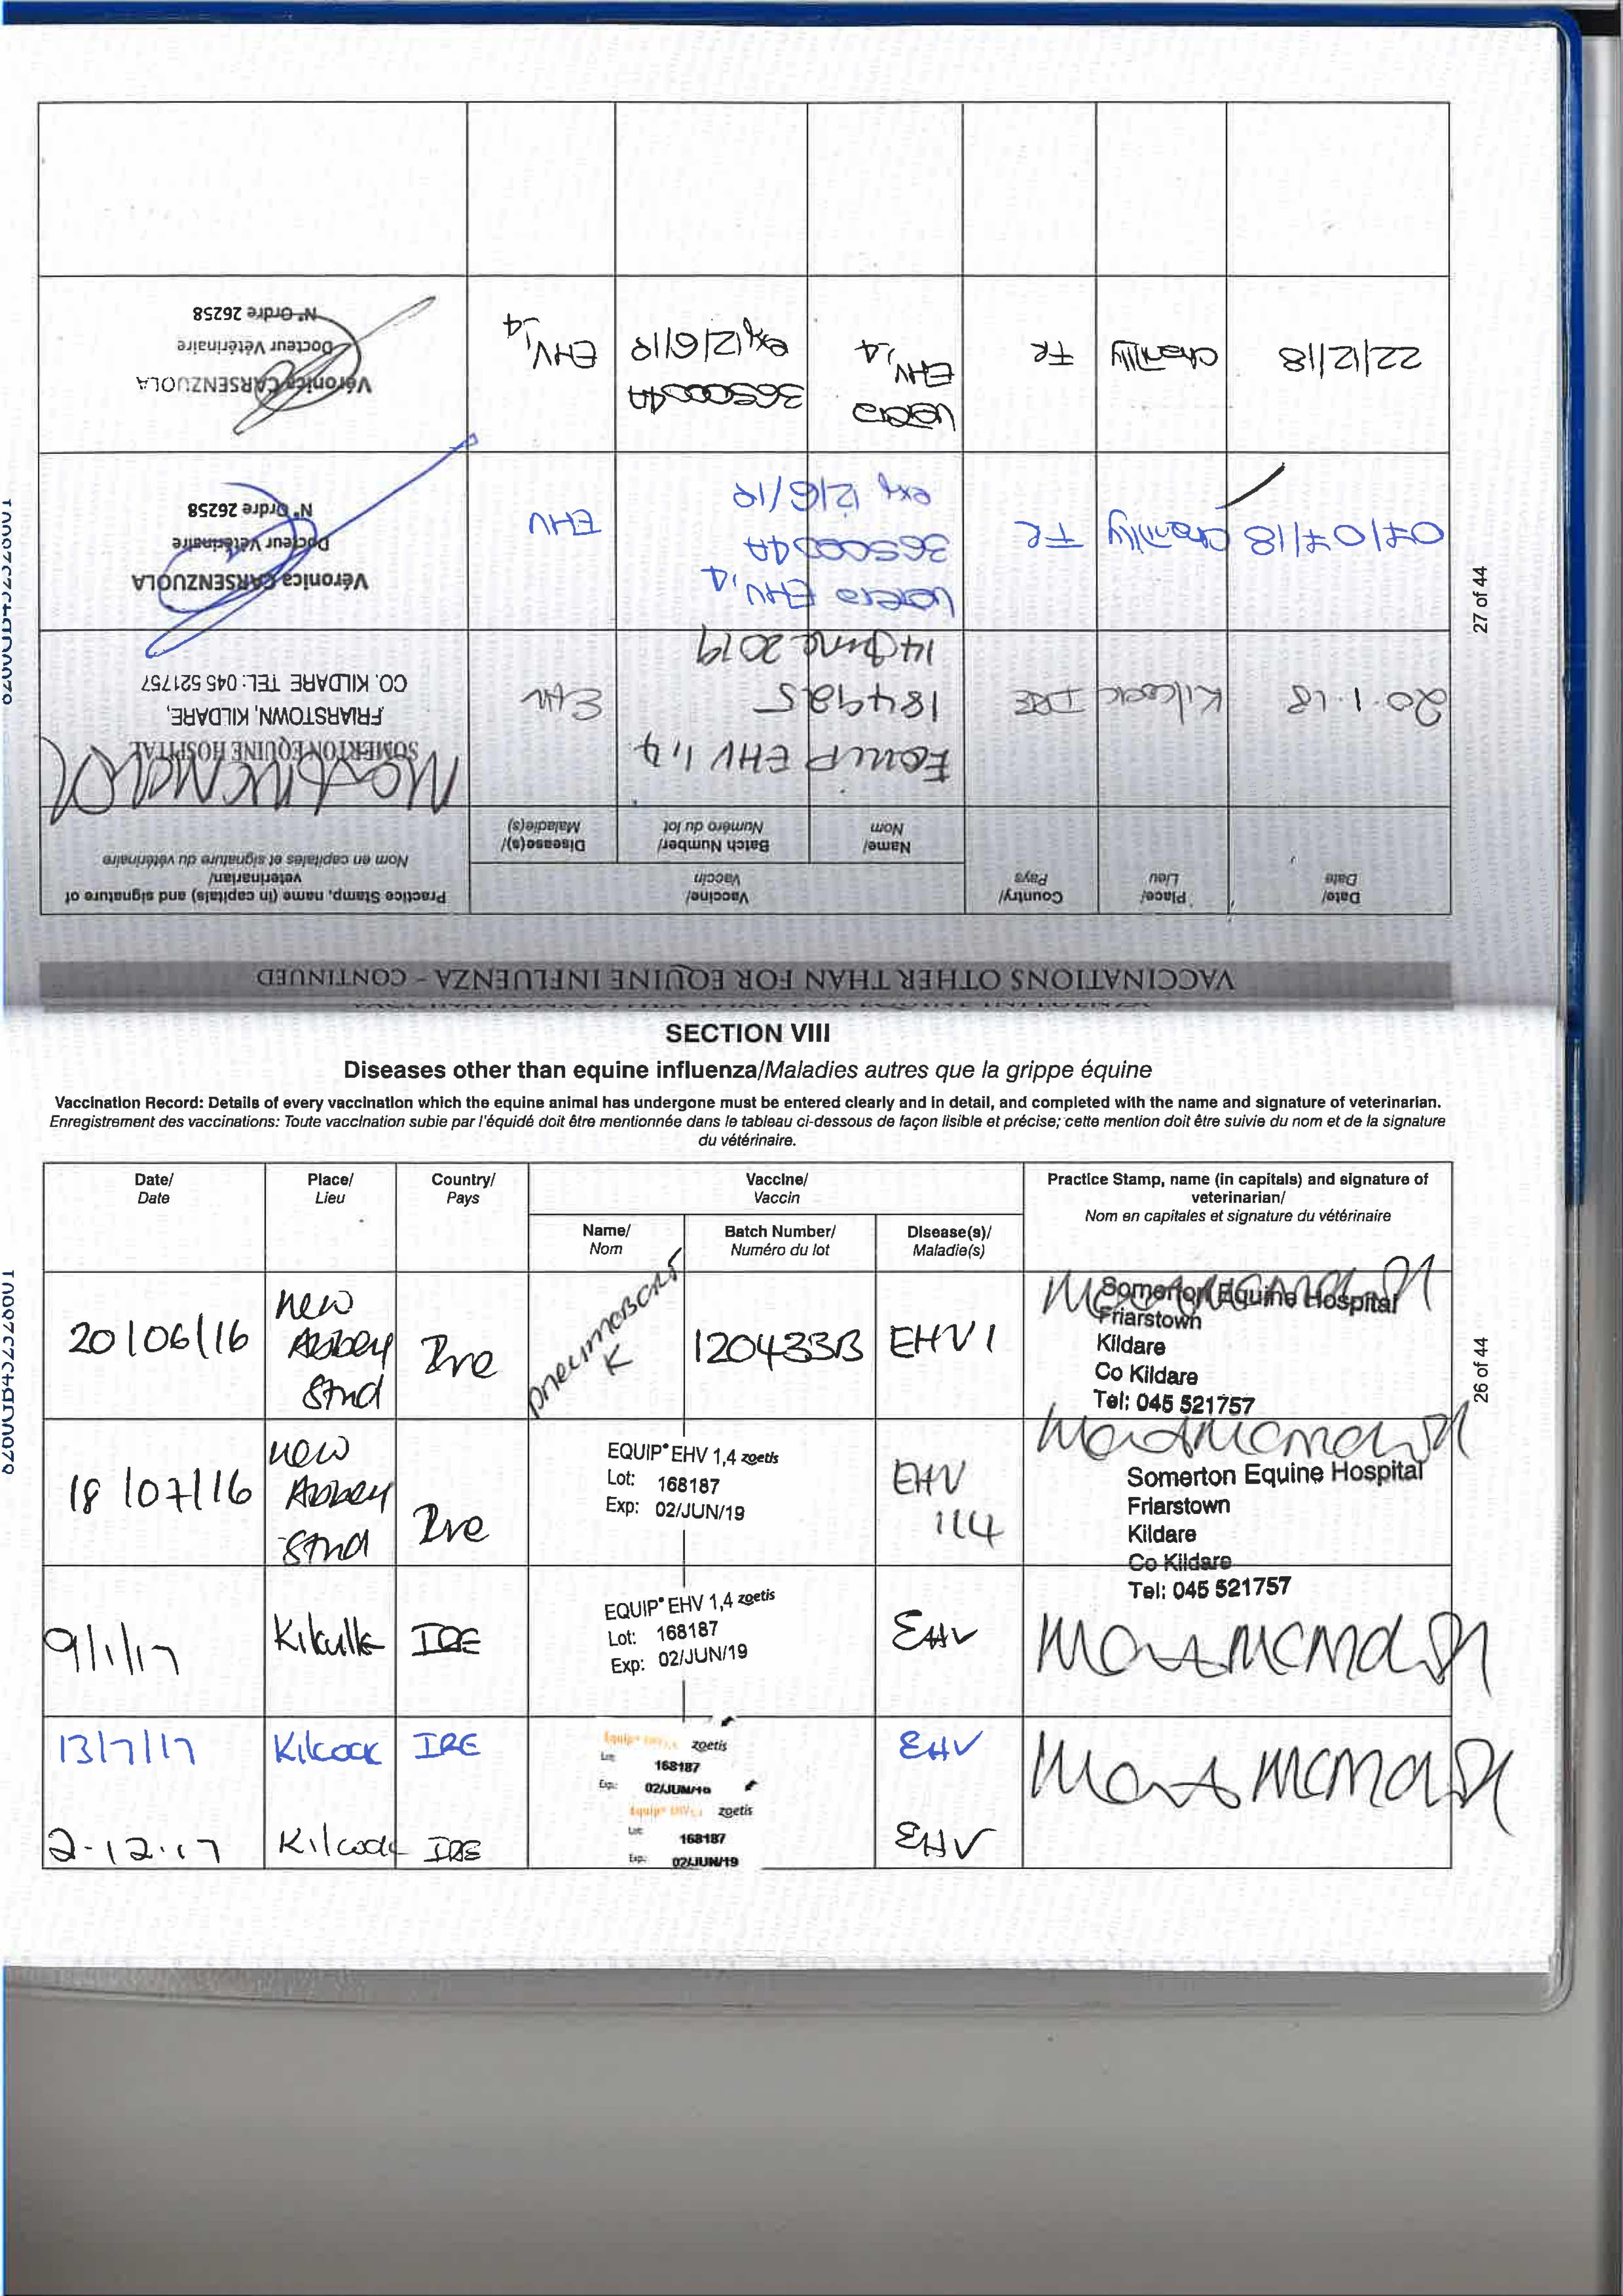 VACCINATIONS OTHER THAN FOR EQUINE INFLUENZA - CONTINUED
Date/ Place/ Country/ Vaccine/ Practice Stamp, name (in capitals) and signature of
Date Lieu Pays Vaccin veterinarian/
Nom en capitales et signature du vétérinaire
Name/ Batch Number/ Disease(s)/
Nom Numéro du lot Maladie(s)
20.1.18 Kilcock IRE EQUIP EHV 1,4 EHV
14 June 2019
SOMERTON EQUINE HOSPITAL
FRIARSTOWN, KILDARE,
CO. KILDARE TEL: 045 521757
07/07/18 Chantilly FR EHV 1,4 EHV
3650004A
exp 12/6/19
Véronica CARSENZUOLA
Docteur Vétérinaire
N° Ordre 26258
22/12/18 Chantilly FR EHV 1,4 3650004A EHV 1,4
exp 12/6/19
Véronica CARSENZUOLA
Docteur Vétérinaire
N° Ordre 26258
27 of 44
SECTION VIII
Diseases other than equine influenza/Maladies autres que la grippe équine
Vaccination Record: Details of every vaccination which the equine animal has undergone must be entered clearly and in detail, and completed with the name and signature of veterinarian.
Enregistrement des vaccinations: Toute vaccination subie par l'équidé doit être mentionnée dans le tableau ci-dessous de façon lisible et précise; cette mention doit être suivie du nom et de la signature
du vétérinaire.
Date/ Place/ Country/ Vaccine/ Practice Stamp, name (in capitals) and signature of
Date Lieu Pays Vaccin veterinarian/
Nom en capitales et signature du vétérinaire
Name/ Batch Number/ Disease(s)/
Nom Numéro du lot Maladie(s)
20/06/16 New Abbey Stud Ire K 120433B EHV1
Somerton Equine Hospital
Friarstown
Kildare
Co Kildare
Tel: 045 521757
18/07/16 New Abbey Stud Ire EHV 1,4
EQUIP EHV 1,4 zoetis
Lot: 168187
Exp: 02/JUN/19
Somerton Equine Hospital
Friarstown
Kildare
Co Kildare
Tel: 045 521757
9/1/17 IRE EHV
EQUIP EHV 1,4 zoetis
Lot: 168187
Exp: 02/JUN/19
13/7/17 Kilcock IRE EHV
Equip zoetis
Lot: 168187
Exp: 02/JUN/19
2.12.17 Kilcock IRE EHV
Equip zoetis
Lot: 168187
Exp: 02/JUN/19
26 of 44